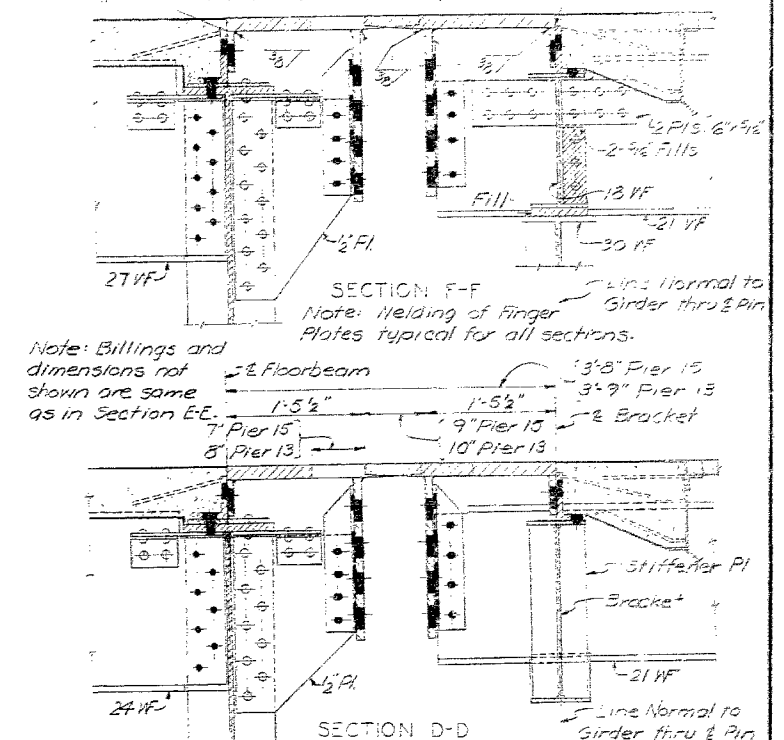 3/8
3/8
3/8
½ Pls. 6"x5/16"
2-5/16 Fills
Fill
18 WF
21 WF
30 WF
½ Pl.
27 WF
SECTION F-F
Line Normal to
Girder thru ℄ Pin
Note: Welding of Finger
Plates typical for all sections.
Note: Billings and
dimensions not
shown are same
as in Section E-E.
℄ Floorbeam
3'-8" Pier 15
3'-9" Pier 13
1'-5½"
1'-5½"
℄ Bracket
7" Pier 15
8" Pier 13
9" Pier 15
10" Pier 13
Stiffener Pl
Bracket
½ Pl.
21 WF
24 WF
SECTION D-D
Line Normal to
Girder thru ℄ Pin